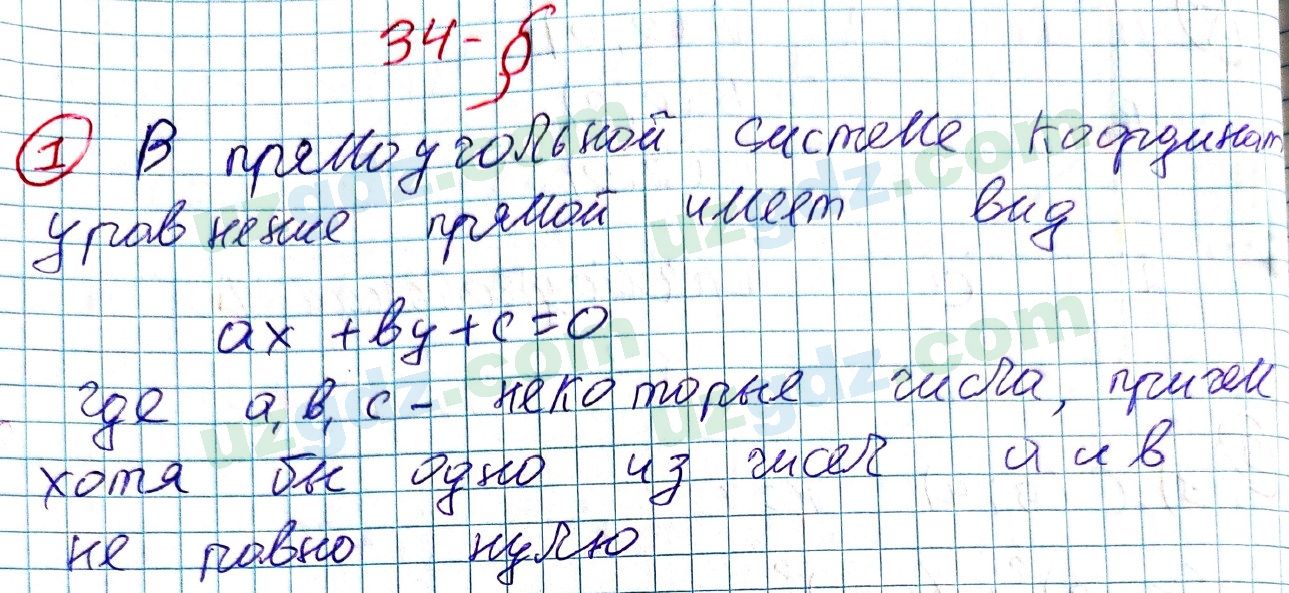 34-§
1 В прямоугольной системе координат
уравнение прямой имеет вид
ax + by + c = 0
где a, b, c - некоторые числа, причем
хотя бы одно из чисел a и b
не равно нулю
uzgdz.com
uzgdz.com
uzgdz.com
uzgdz.com